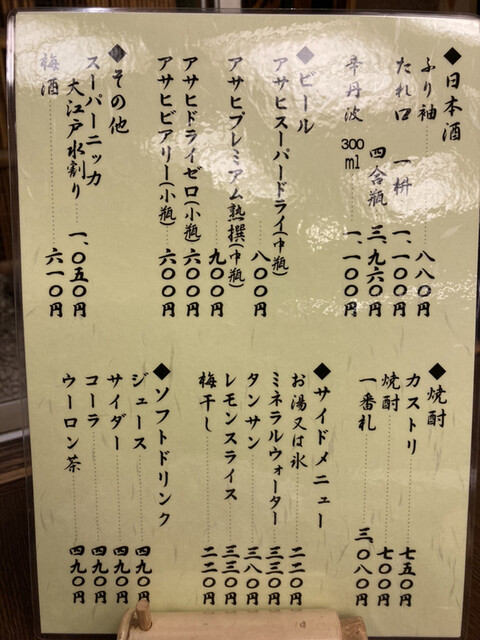 ◆日本酒
ふり袖 八八〇円
たれ口 一枡 一、一〇〇円
四合瓶 三、九六〇円
辛丹波 300ml 一、一〇〇円
◆ビール
アサヒスーパードライ(中瓶) 八〇〇円
アサヒプレミアム熟撰(中瓶) 九〇〇円
アサヒドライゼロ(小瓶) 六〇〇円
アサヒビアリー(小瓶) 六〇〇円
◆その他
スーパーニッカ
大江戸水割り 一、〇五〇円
梅酒 六一〇円
◆焼酎
カストリ 七五〇円
焼酎 七〇〇円
一番札 三、〇八〇円
◆サイドメニュー
お湯又は氷 二二〇円
ミネラルウォーター 三三〇円
タンサン 三八〇円
レモンスライス 三三〇円
梅干し 二二〇円
◆ソフトドリンク
ジュース 四九〇円
サイダー 四九〇円
コーラ 四九〇円
ウーロン茶 四九〇円